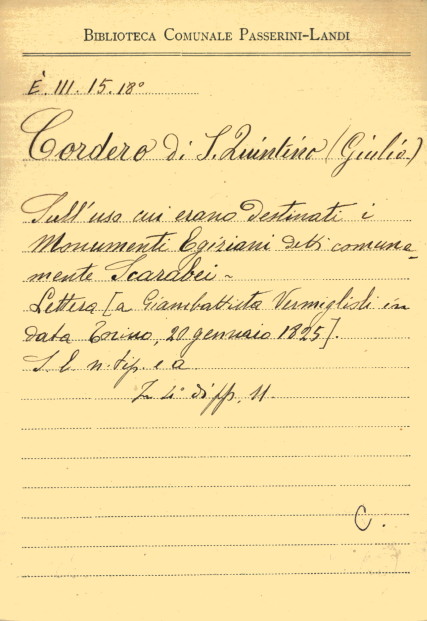 BIBLIOTECA COMUNALE PASSERINI-LANDI
È. III. 15. 18°
Cordero di S. Quintino (Giulio)
Sull'uso cui erano destinati i
Monumenti Egiziani detti comune-
mente Scarabei ~
Lettera [a Giambattista Vermiglioli in
data Torino, 20 gennaio 1825].
S. l. n. tip. e a
In 4° di pp. 11.
C.